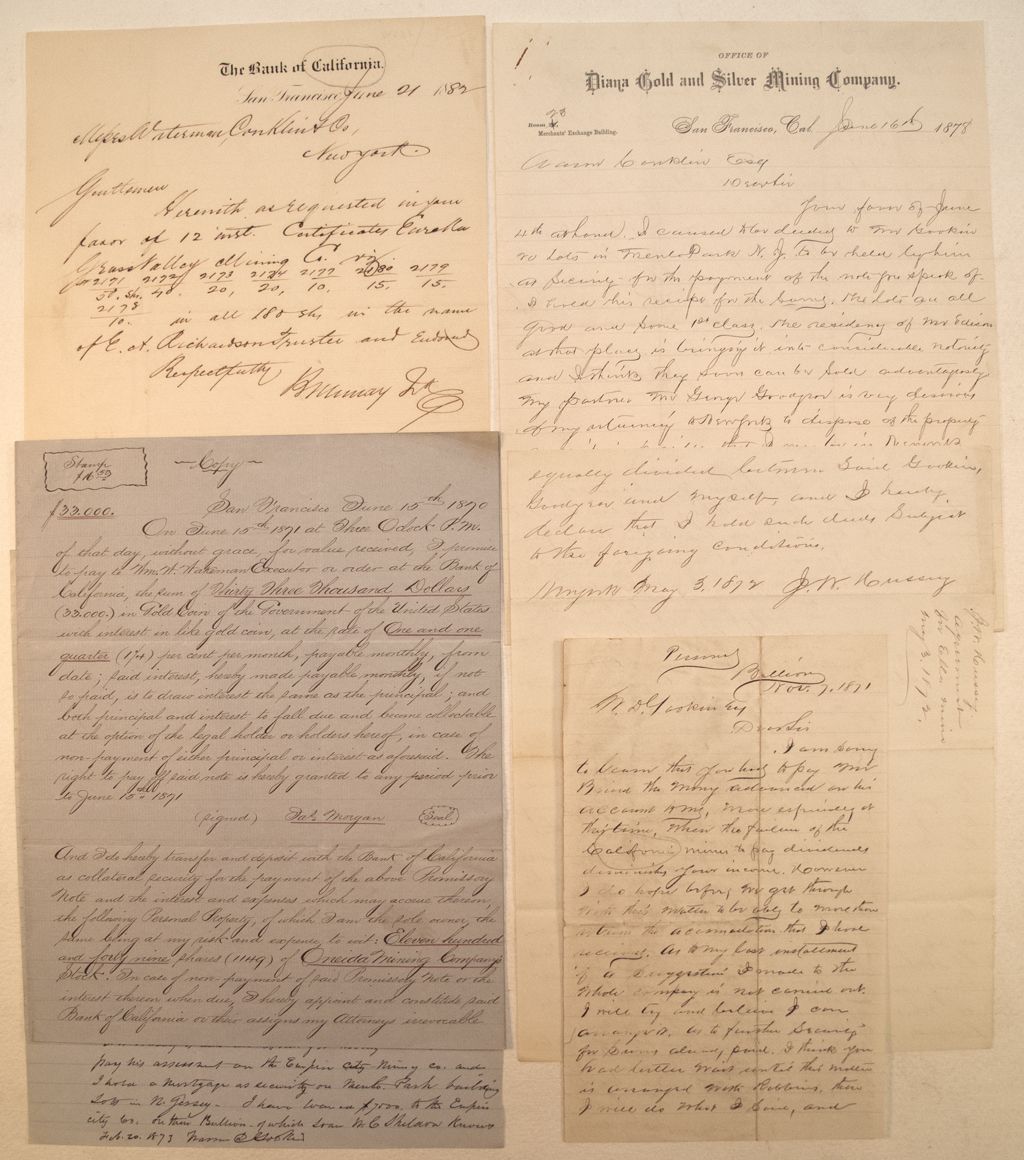 The Bank of California.
San Francisco, June 21 1882
Messrs Waterman, Conklin & Co,
New York.
Gentlemen
Herewith as requested in your
favor of 12 inst. Certificates Eureka
Grass Valley Mining Co. viz
2171 2172 2173 2174 2177 2180 2179
50. shs. 40 20, 20, 10. 15. 15.
2178
10. in all 180 shs in the name
of E. A. Richardson Trustee and Endorsed
Respectfully
B Murray Jr
OFFICE OF
Diana Gold and Silver Mining Company.
Room 23
Merchants' Exchange Building.
San Francisco, Cal. June 16th 1878
Conklin Esq
Dear Sir
Your favor of June
4th at hand. I caused to be deeded to Mr Gookin
lots in Menlo Park N. J. to be held by him
as security for the payment of the note you speak of.
I hold his receipt for the same. The lots are all
good and some 1st class. The residency of Mr Edison
at that place is bringing it into considerable notoriety
and I think they soon can be sold advantageously
My partner Mr George Goodyear is very desirous
of my returning to New York to dispose of the property
equally divided between said Gookin,
Goodyear and myself and I hereby
declare that I hold such deeds subject
to the foregoing conditions.
May 3, 1872 J. W. Hussey
agreement
May 3. 1872.
Stamp
Copy
$33.000. San Francisco June 15th 1870
On June 15th 1871 at Three O'clock P.M.
of that day, without grace, for value received, I promise
to pay to Wm. W. Wakeman Executor or order at the Bank of
California, the sum of Thirty Three Thousand Dollars
(33.000.) in Gold Coin of the Government of the United States
with interest in like gold coin, at the rate of One and one
quarter (1¼) per cent per month, payable monthly, from
date; said interest, hereby made payable monthly, if not
so paid, is to draw interest the same as the principal; and
both principal and interest to fall due and become collectable
at the option of the legal holder or holders hereof, in case of
non-payment of either principal or interest as aforesaid. The
right to pay off said note is hereby granted to any period prior
to June 15th 1871
(signed) Jas Morgan (Seal)
And I do hereby transfer and deposit with the Bank of California
as collateral security for the payment of the above Promissory
Note and the interest and expenses which may accrue thereon,
the following Personal Property, of which I am the sole owner, the
same being at my risk and expense, to wit: Eleven hundred
and forty nine shares (1149) of Oneida Mining Company's
Stock. In case of non-payment of said Promissory Note or the
interest thereon when due, I hereby appoint and constitute said
Bank of California or their assigns my Attorneys irrevocable
pay his assessment on the Empire city Mining co. and
I hold a Mortgage as security on Menlo Park building
lots in N. Jersey - I have loaned $7000. to the Empire
city Co. on their Bullion - of which loan W. C. Sheldon Knows
Feb. 20. 1873
Personal
Bullion
Nov. 7, 1871
W. D. Gookin Esq
Dear Sir
I am sorry
to learn that you had to pay Mr
the money advanced on his
account to me, more especially at
this time, when the failure of the
California mines to pay dividends
diminishes your income. However
I do hope before we get through
with this matter to be able to more than
return the accommodation that I have
received. As to my last installment
if a suggestion I made to the
whole company is not carried out.
I will try and
arrange it. As to further security
for sums already paid. I think you
had better wait until this matter
is arranged with Robbins, then
I will do what I can, and